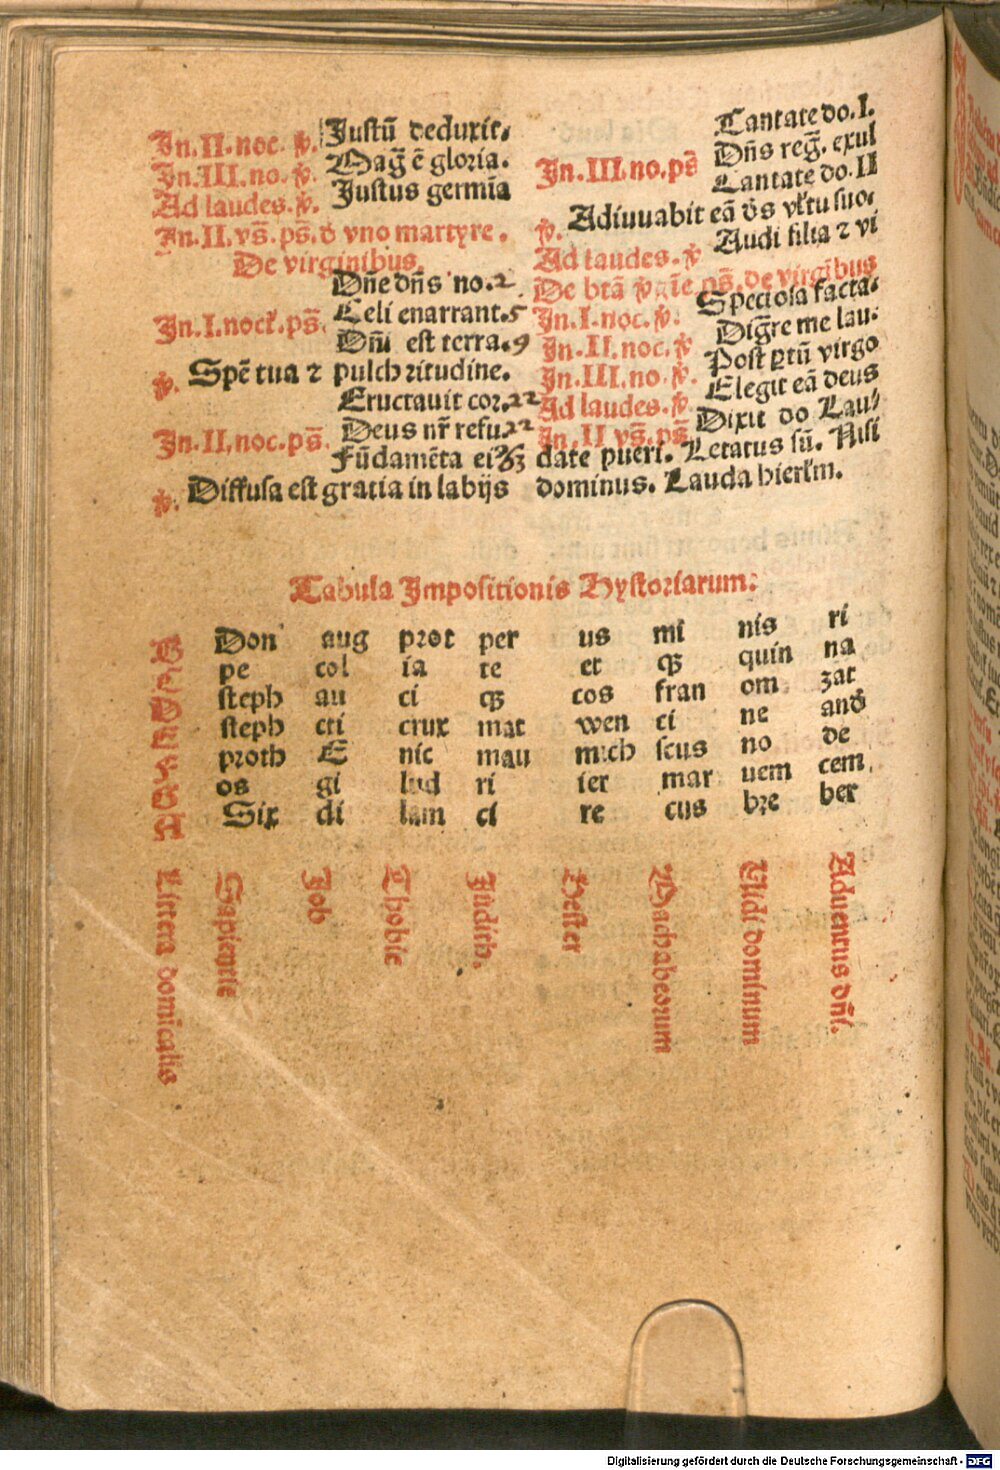 In. II. noc. ꝟ. Justū deduxit.
In. III. no. ꝟ. Mag̃ ē gloria.
Ad laudes. ꝟ. Justus germīa
In. II. vs̄. ps̄. ō vno martyre.
De virginibus.
Dn̄e dn̄s no. 2
In. I. noct̄. ps̄. Celi enarrant. 5
Dn̄i est terra. 9
ꝟ. Spē tua ⁊ pulchritudine.
Eructauit cor. 22
In. II. noc. ps̄. Deus nr̄ refu. 22
Fūdamēta eiꝰ
ꝟ. Diffusa est gratia in labijs
Cantate do. I.
In. III. no. ps̄ Dn̄s reg̃. exul
Cantate do. II
ꝟ. Adiuuabit eā ds̄ vl̄tu suo.
Ad laudes. ꝟ Audi filia ⁊ vi
De btā ꝟgīe ps̄. de virgībus
In. I. noc. ꝟ. Speciosa facta.
In. II. noc. ꝟ Dig̃re me lau.
In. III. no. ꝟ. Post ꝑtū virgo
Ad laudes. ꝟ. Elegit eā deus
In. II vs̄. ps̄. Dixit do Lau
date pueri. Letatus sū. Nisi
dominus. Lauda hierl̄m.
Tabula Impositionis Hystoriarum:
G Don aug prot per us mi nis ri
F pe col ia te et qꝫ quin na
E steph au ci qꝫ cos fran om zat
D steph cti crux mat wen ci ne and
C proth E nic mau mich scus no de
B os gi lud ri ier mar uem cem
A Six di lam ci re cus bre ber
Littera domīcalis
Sapientie
Job
Thobie
Judith.
Hester
Machabeorum
Uidi dominum
Aduentus dn̄i.
Digitalisierung gefördert durch die Deutsche Forschungsgemeinschaft - DFG